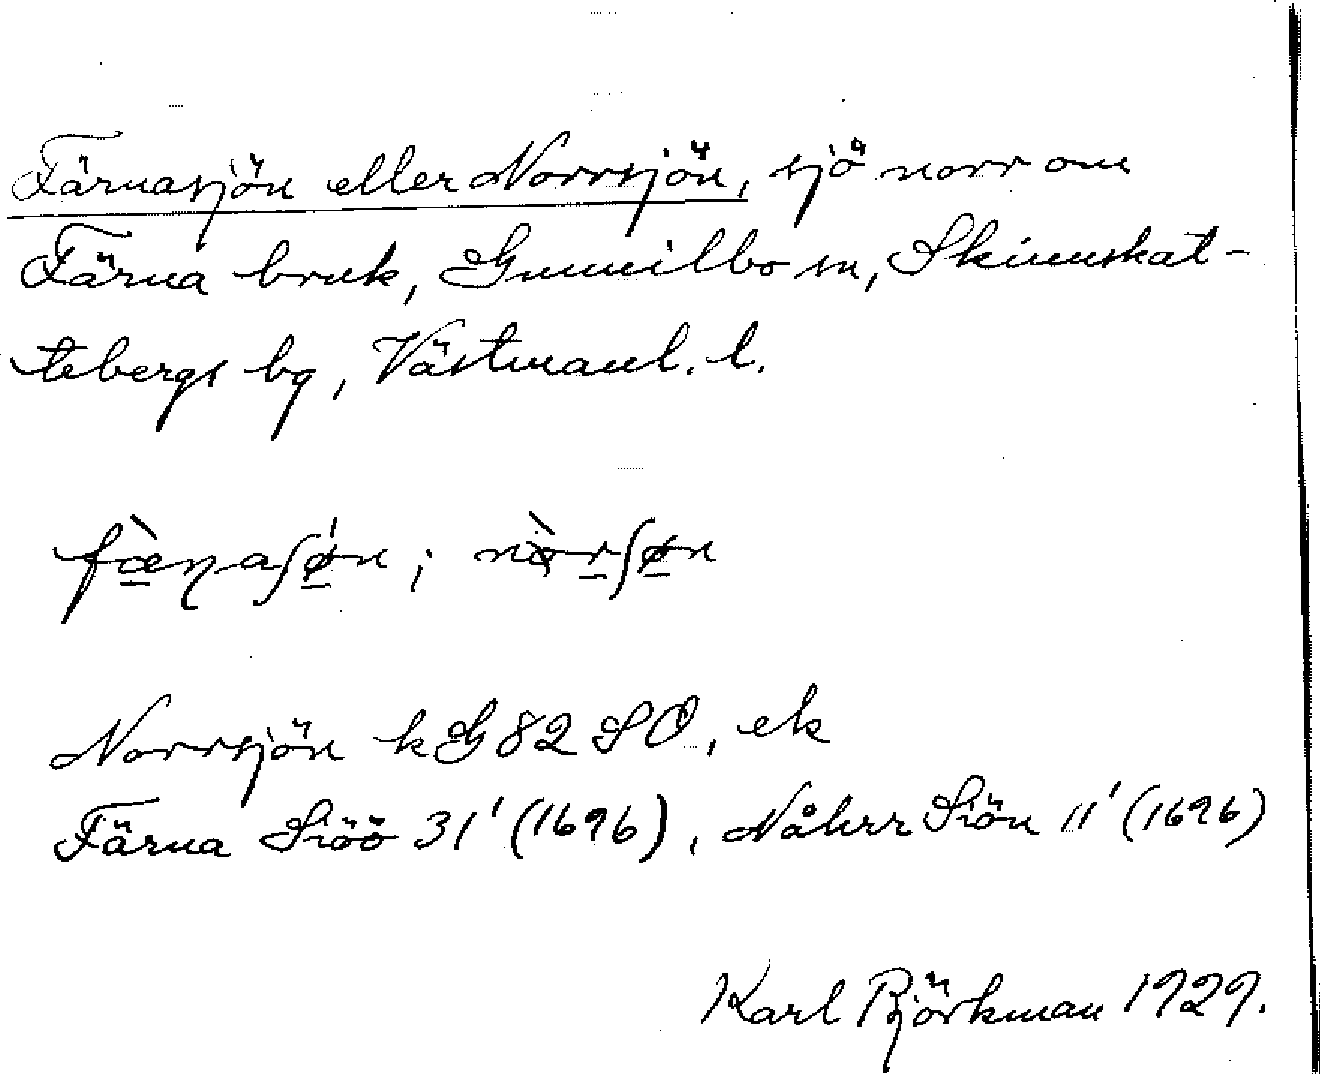 Färnasjön eller Norrsjön, sjö norr om
Färna bruk, Gunnilbo sn, Skinnskat-
tebergs bg, Västmanl. l.
fæ̀ṇaʃǿn ; nòrʃøn
Norrsjön kG 82 SO, ek
Färna Siöö 31' (1696), Nåhrr Siön 11' (1696)
Karl Björkman 1929.